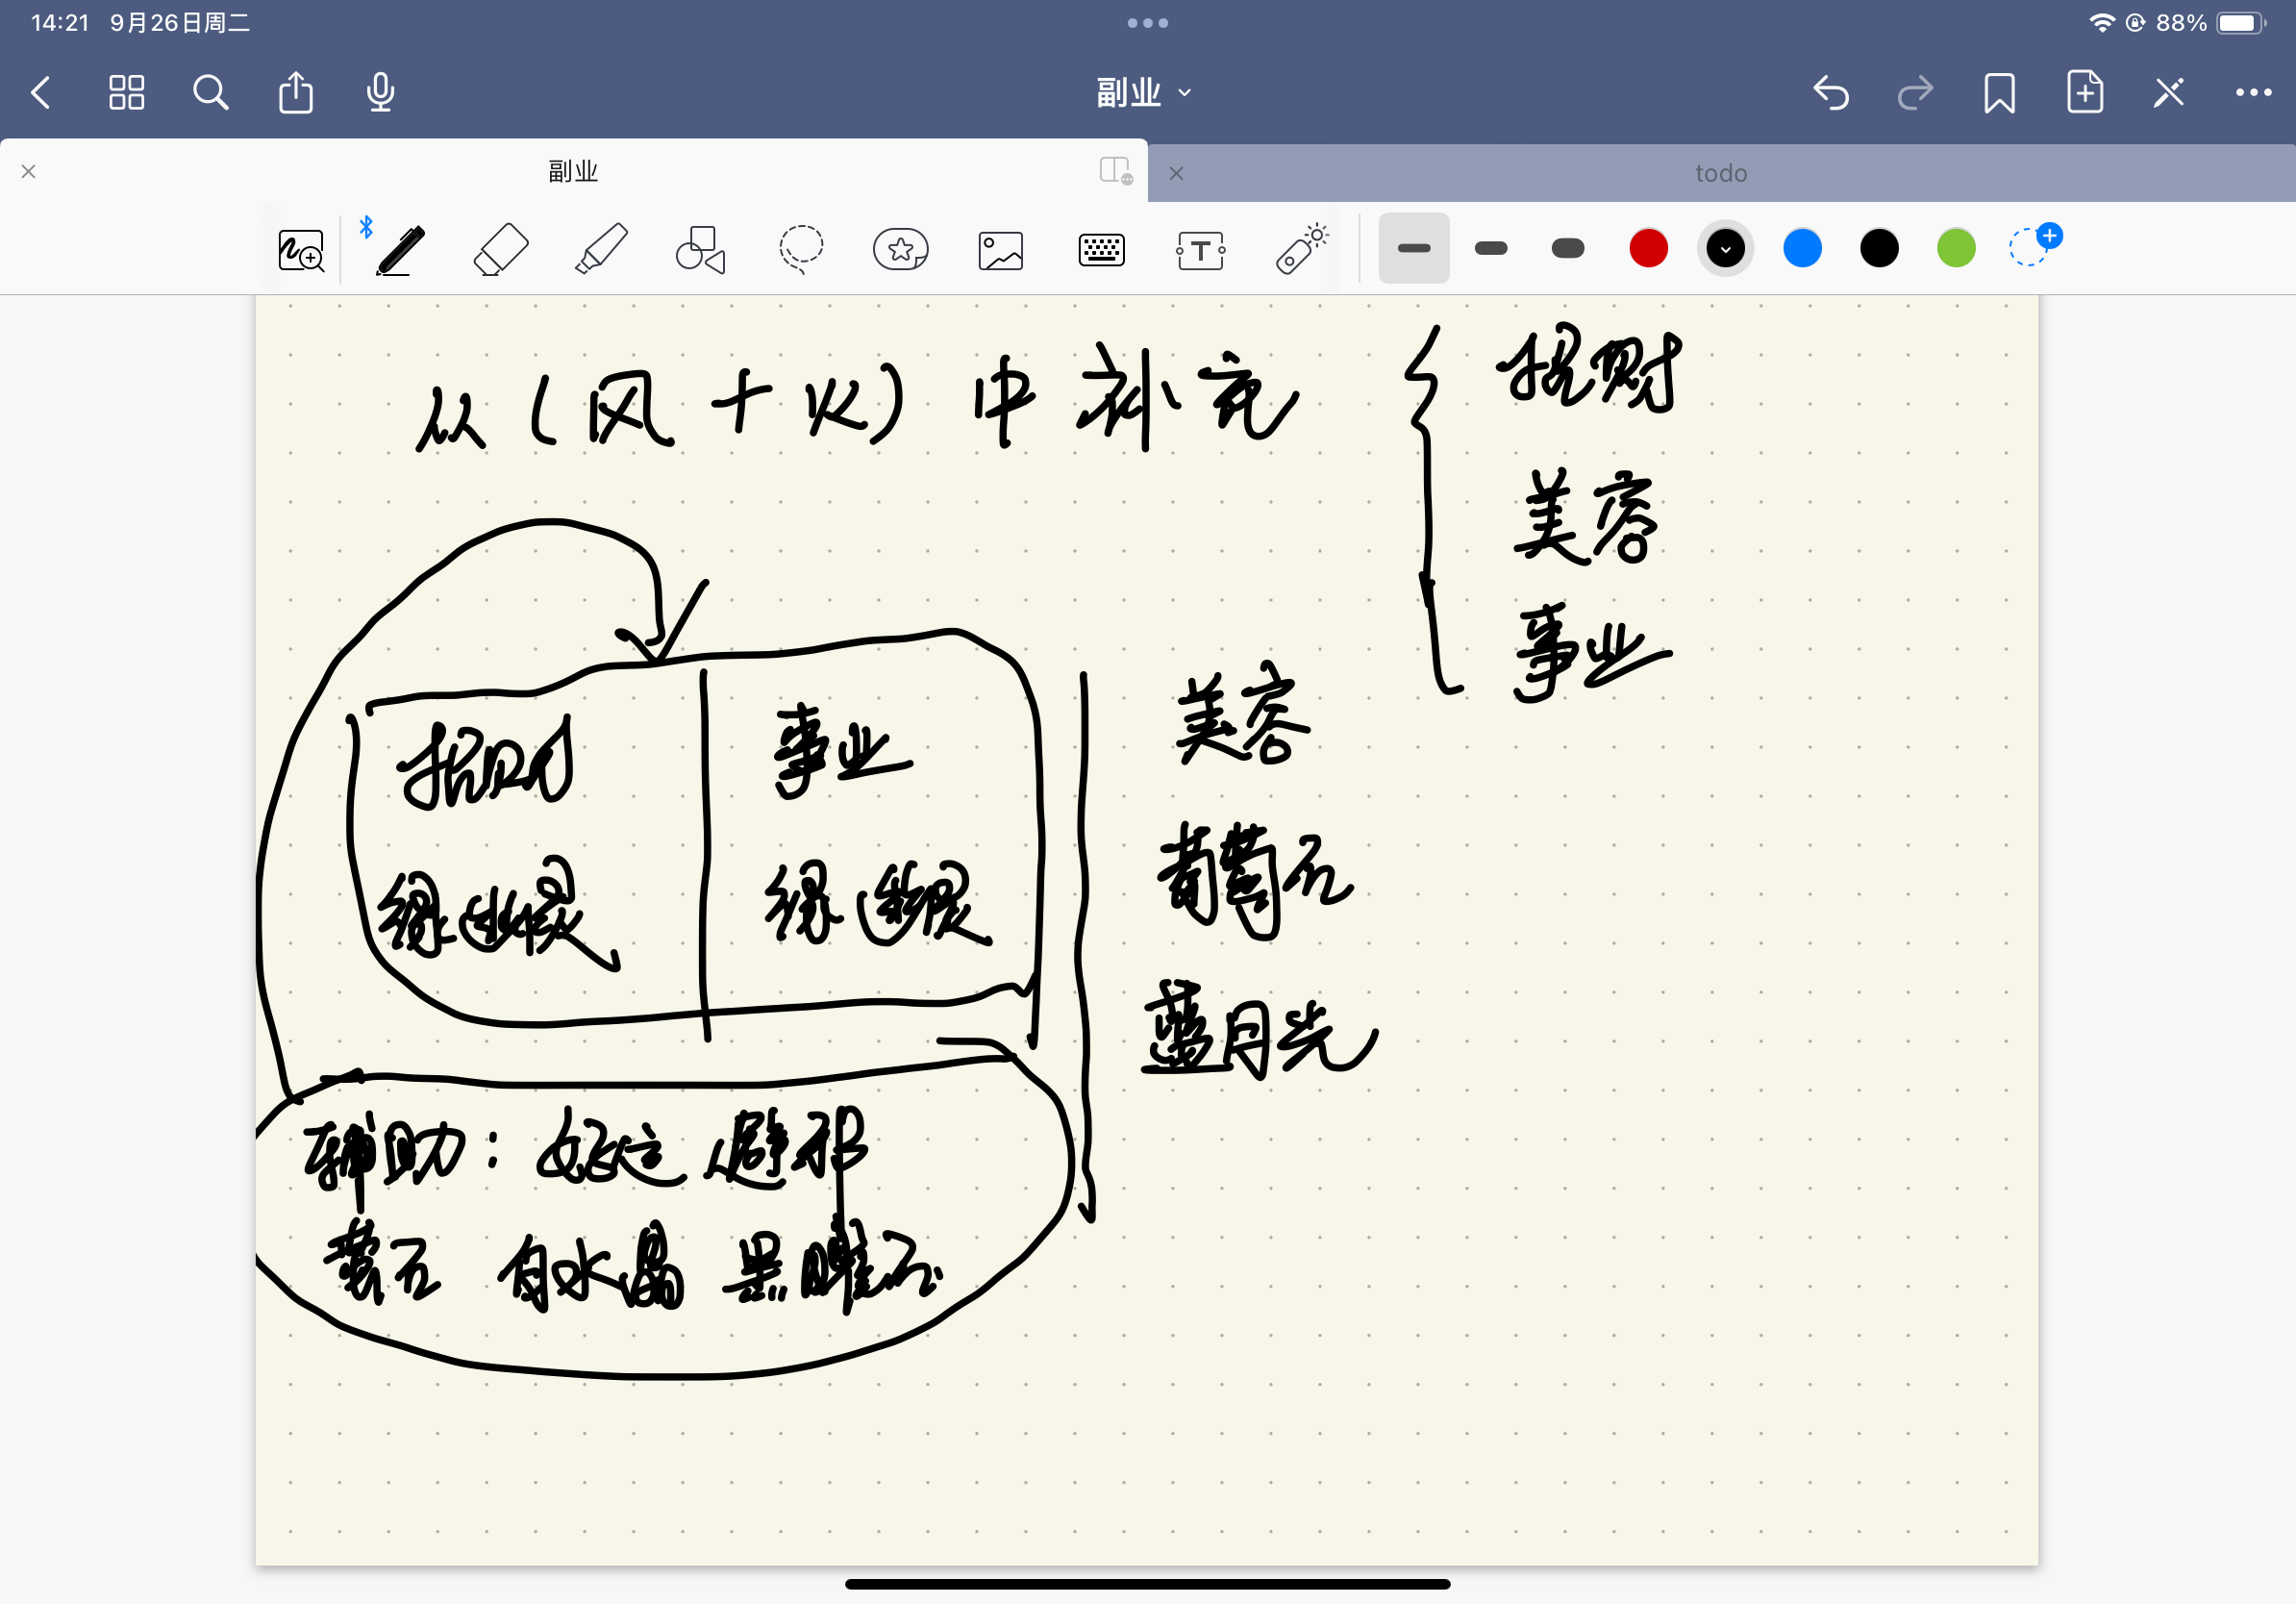 14:21 9月26日周二 88%
副业
副业
todo
从(风十火)中补充
招财
美容
事业
招财
事业
美容
绿
绿
葡萄石
蓝月光
辅助: 好运 辟邪
黄石 白水晶 黑曜石